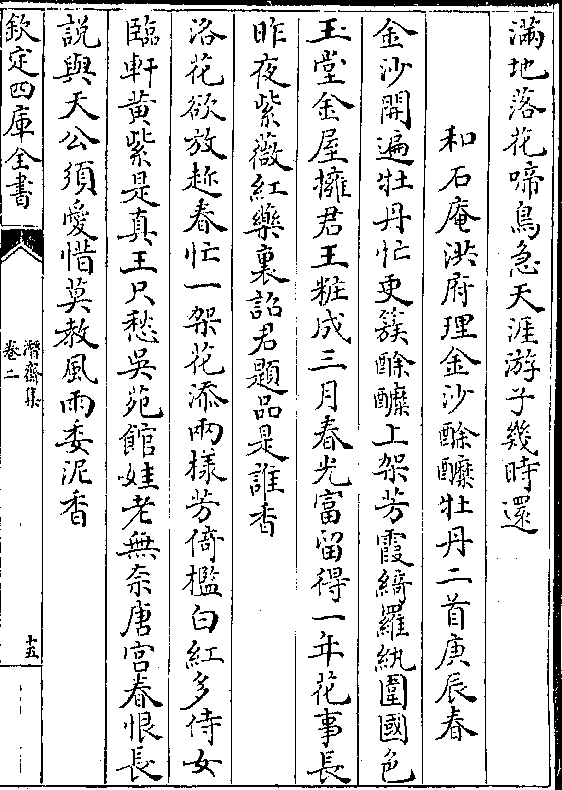 滿地落花啼鳥急天涯游子幾時還
和石庵洪府理金沙酴醾牡丹二首庚辰春
金沙開遍牡丹忙更簇酴醾上架芳霞綺羅紈圍國色
玉堂金屋擁君王粧成三月春光富留得一年花事長
昨夜紫薇紅藥裏詔君題品是誰香
洛花欲放趂春忙一架花添兩樣芳倚檻白紅多侍女
臨軒黄紫是真王只愁吳苑館娃老無奈唐宫春恨長
說與天公須愛惜莫教風雨委泥香
欽定四庫全書
潛齋集
卷二
十五